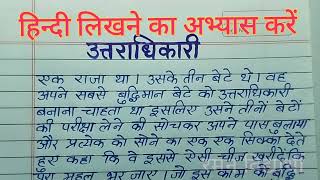 हिन्दी लिखने का अभ्यास करें
उत्तराधिकारी
एक राजा था। उसके तीन बेटे थे। वह
अपने सबसे बुद्धिमान बेटे को उत्तराधिकारी
बनाना चाहता था इसलिए उसने तीनों बेटों
की परीक्षा लेने की सोचकर अपने पास बुलाया
और प्रत्येक को सोने का एक एक सिक्का देते
हुए कहा कि वे इससे ऐसी चीज खरीदें कि
पूरा महल भर जाए। जो इस काम को